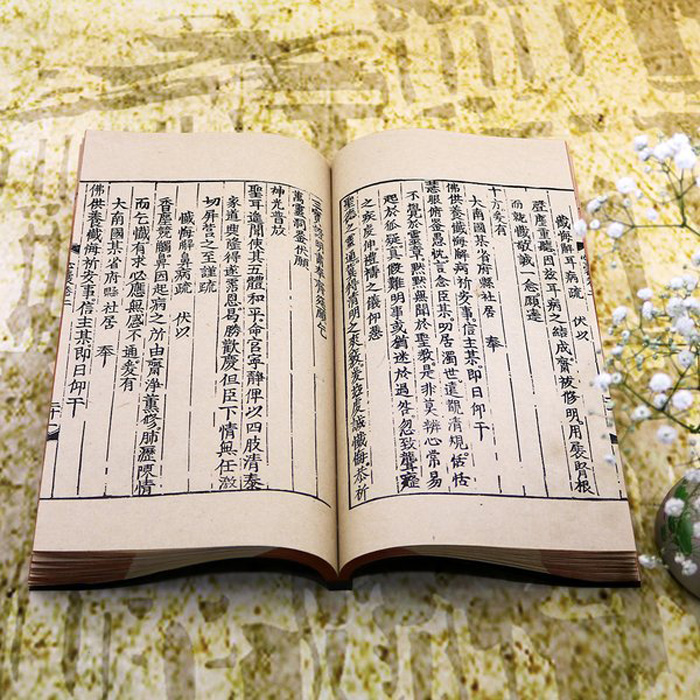 懺悔解耳病疏 伏以
聲塵重聽因茲耳病之結成齋祓修明用展肾根
而就懺敬誠一念願達
十方爰有
大南國某省府縣社居 奉
佛供養懺悔解病祈安事信主某即日仰干
慧眼俯鑒愚忱言念臣某叨居濁世遠龍清規恬恬
不覺於靈章默默無聞於聖教是非莫辨心常易
起於狐疑真假難明事或銷迷於過咎忽致聾聽
之疾爰伸禮禱之儀仰憑
聖慈之靈通冀得清明之來致爰茲虔誠懺悔恭祈
萬靈洞鉴伏願
神光普放
聖耳遥聞使其五體和平命宮寧靜俾以四肢清泰
家道興隆得遂蒙恩曷勝歡慶但臣下情無任激
切屏營之至謹疏
懺悔解鼻病疏 伏以
香屑競觸鼻因起病之所由齋淨薰修肺瀝陳情
而乞懺有求必應無感不通爰有
大南國某省府縣社居 奉
佛供養懺悔祈安事信主某即日仰干